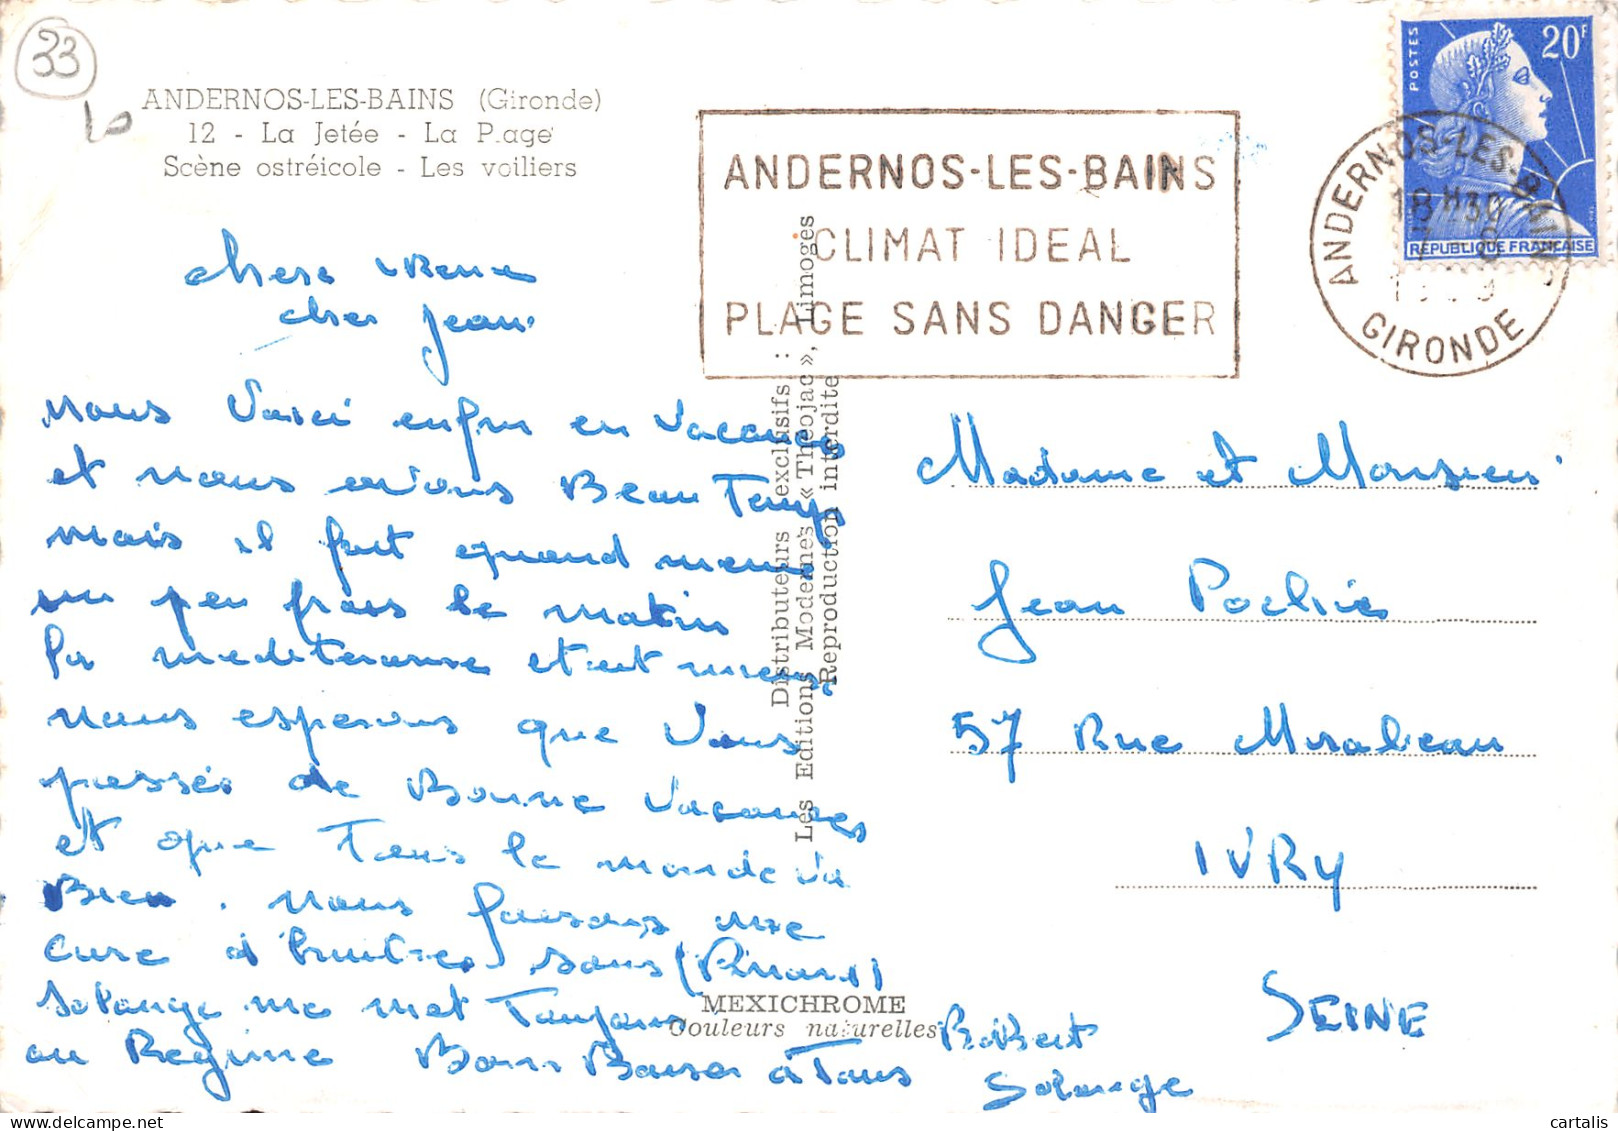 33
ANDERNOS-LES-BAINS (Gironde)
12 - La Jetée - La Plage
Scène ostréicole - Les voiliers
ANDERNOS-LES-BAINS
CLIMAT IDEAL
PLAGE SANS DANGER
POSTES
20F
RÉPUBLIQUE FRANÇAISE
ANDERNOS-LES-BAINS
18H30
GIRONDE
chere
cher Jean
nous Voici enfin en Vacances
et nous avons Beau Temps
mais il fait quand meme
un peu frais le matin
la mediteranne etait mieux
nous esperons que Vous
passés de Bonne Vacances
et que Tous le monde va
Bien. nous faisons une
cure d'huitres sans (Pinard)
Solange me met Toujours
au Regime Bons Baiser à Tous
Robert
Solange
Distributeurs exclusifs :
Les Editions Modernes « Théojac », Limoges
Reproduction interdite
MEXICHROME
Couleurs naturelles
Madame et Monsieur
Jean
57 Rue Mirabeau
IVRY
SEINE
cartalis
delcampe.net